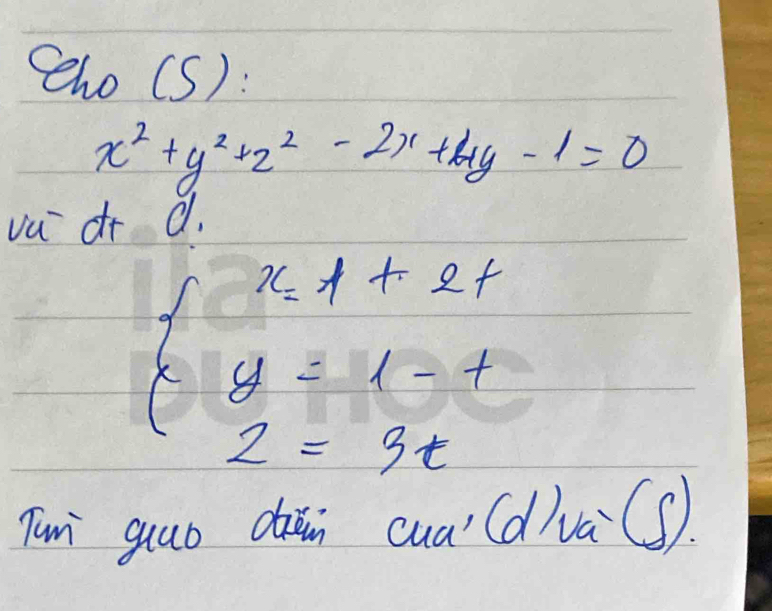 Cho (S):
x² + y² + z² - 2x + 4y - 1 = 0
và đt d.
ila
x = 1 + 2t
DU HOC
y = 1 - t
z = 3t
Tìm giao điểm của (d) và (S).